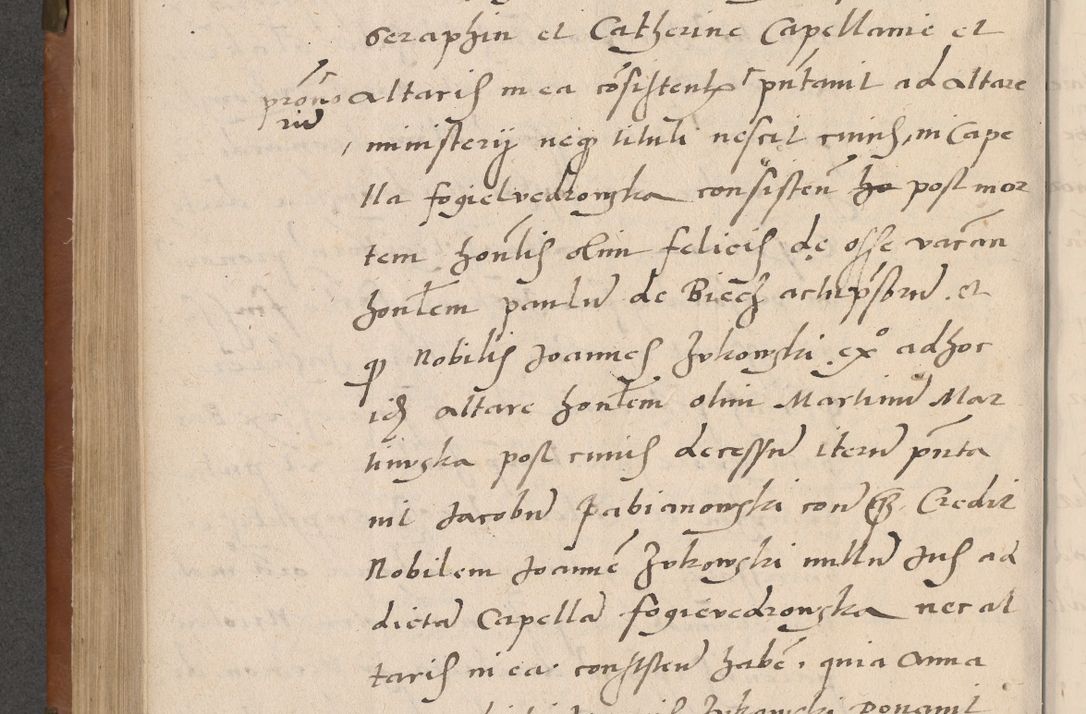 Seraphin et Catherine Capellanie et
altaris in ea cōsistent pn̄tavit ad altare
ministerij neq tituli nescit cuius, in Cape
lla fogielvedrowska consisteñ post mor
tem hon̄lis olim felicis de osse vacan
hon̄lem paulū de Biecz et
q Nobilis Joannes Zukowski exº ad hoc
id altare hon̄lem olim Martinū Mar
tinuska post cuius decessū iterū pn̄ta
vit Jacobū Pabianowski con Credit
Nobilem Joannē Zukowski nullū Jus ad
dictā Capellā fogievedrowska nec al
taris in ea consisteñ habē, quia Anna
Zukowski Donavit